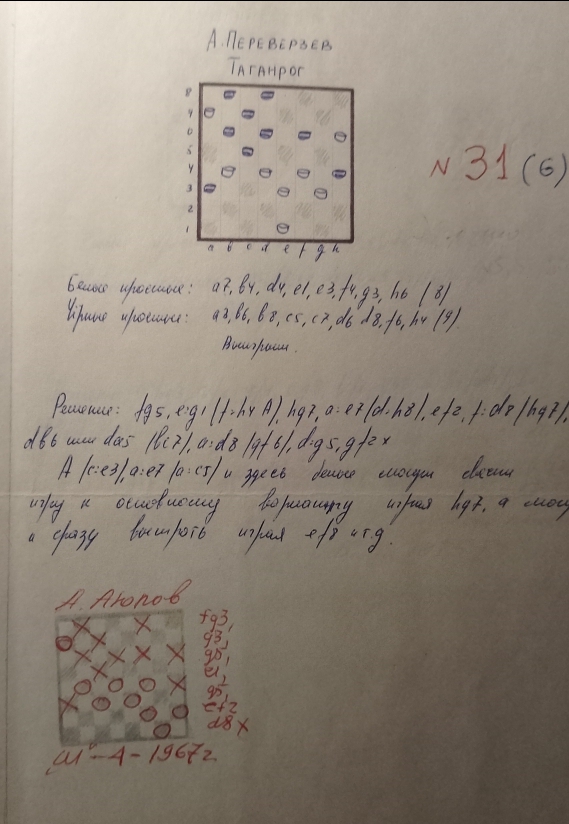 А. ПЕРЕВЕРЗЕВ
ТАГАНРОГ
8
7
6
5
4
3
2
1
a b c d e f g h
N 31 (6)
Белые простые: a7, b4, d4, e1, e3, f4, g3, h6 (8)
Чёрные простые: a3, b6, b8, c5, c7, d6 d8, f6, h4 (9)
Выигрыш.
Решение: fg5, e:g1 (f:h4 A), hg7, a:e7 (d:h8), ef2, f:d8 (hg7),
db6 или da5 (bc7), a:d8 (gf6), d:g5, gf2x
A (c:e3), a:e7 (a:c5) и здесь белые могут свести
игру к основному варианту играя hg7, а могу
и сразу выиграть играя ef8 и т.д.
А. Аюпов
fg3,
g3,
g5,
c1,
g5,
ef2
d8x
"Ш"-А-1967г